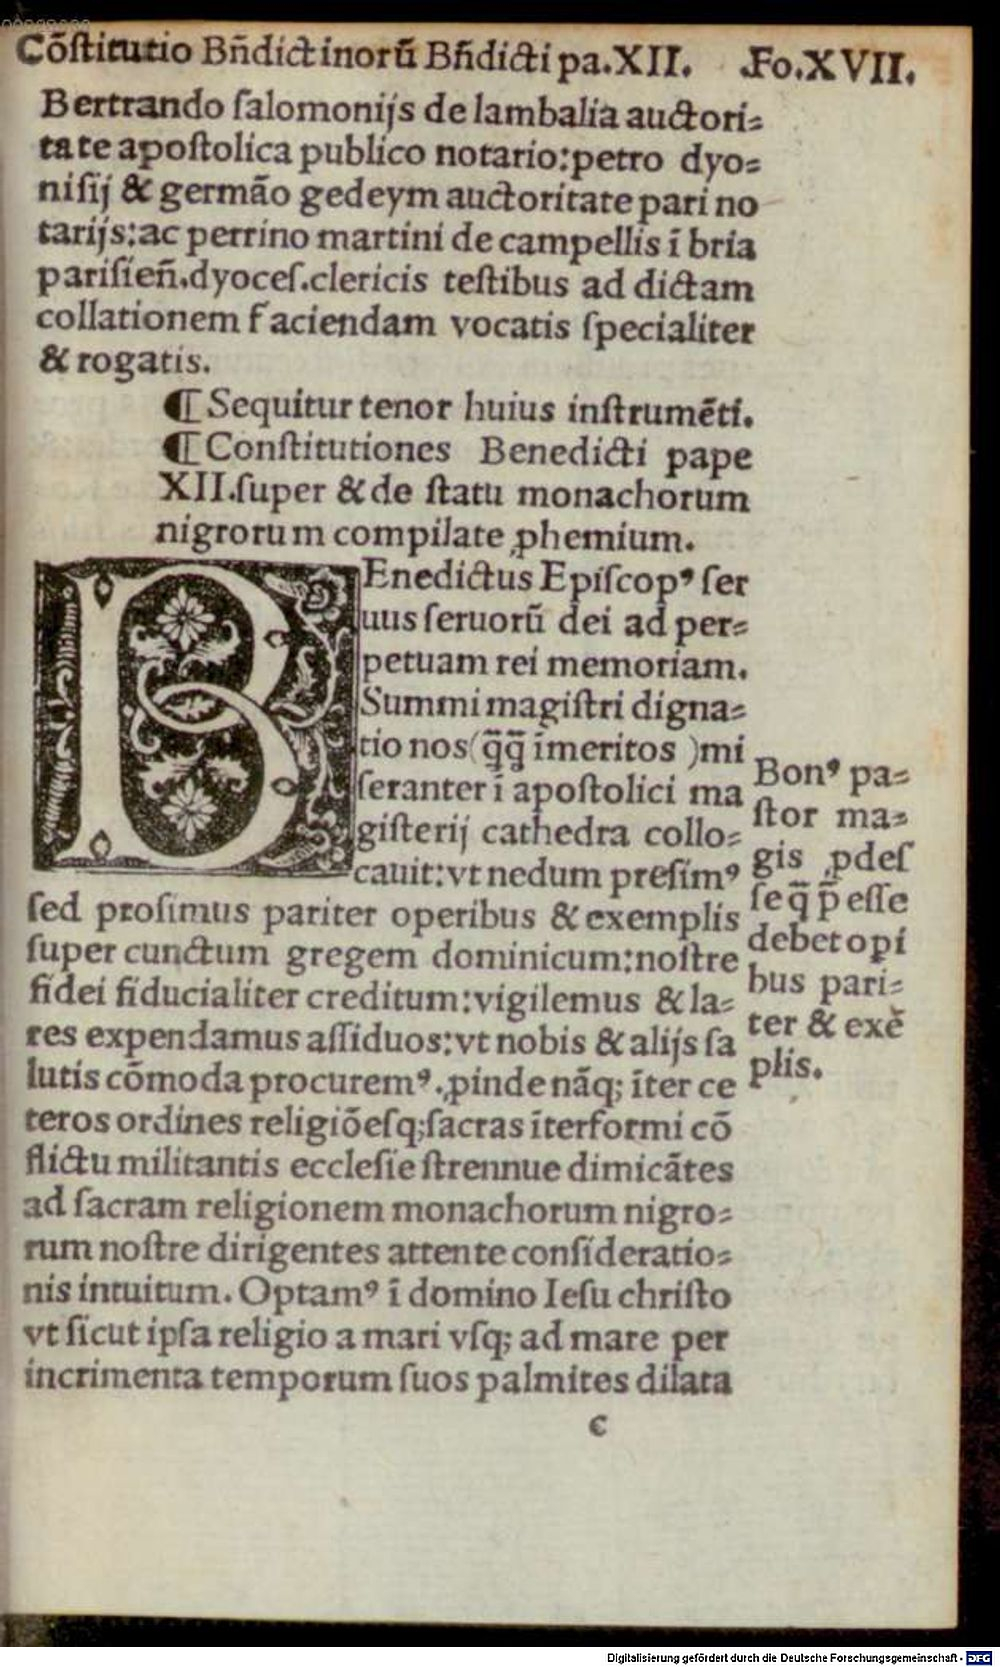 Cõſtitutio Bñdictinorũ Bñdicti pa.XII. Fo.XVII.
Bertrando ſalomonijs de lambalia auctori⸗
tate apoſtolica publico notario:petro dyo⸗
niſij & germão gedeym auctoritate pari no
tarijs:ac perrino martini de campellis ĩ bria
pariſieñ.dyoceſ.clericis teſtibus ad dictam
collationem faciendam vocatis ſpecialiter
& rogatis.
¶ Sequitur tenor huius inſtrumẽti.
¶ Conſtitutiones Benedicti pape
XII.ſuper & de ſtatu monachorum
nigrorum compilate ꝓhemium.
BEnedictus Epiſcopꝰ ſer
uus ſeruorũ dei ad per⸗
petuam rei memoriam.
Summi magiſtri digna⸗
tio nos(q̃q̃ ĩmeritos )mi
ſeranter ĩ apoſtolici ma
giſterij cathedra collo⸗
cauit:vt nedum preſimꝰ
ſed proſimus pariter operibus & exemplis
ſuper cunctum gregem dominicum:noſtre
fidei fiducialiter creditum:vigilemus & la⸗
res expendamus aſſiduos:vt nobis & alijs ſa
lutis cõmoda procuremꝰ.ꝓinde nãq; ĩter ce
teros ordines religiõeſq;ſacras ĩterformi cõ
flictu militantis eccleſie ſtrennue dimicãtes
ad ſacram religionem monachorum nigro⸗
rum noſtre dirigentes attente conſideratio⸗
nis intuitum. Optamꝰ ĩ domino Ieſu chriſto
vt ſicut ipſa religio a mari vſq; ad mare per
incrimenta temporum ſuos palmites dilata
c
Bonꝰ pa⸗
ſtor ma⸗
gis ꝓdeſ
ſe q̃ p̃eſſe
debet opi
bus pari⸗
ter & exẽ
plis.
Digitalisierung gefördert durch die Deutsche Forschungsgemeinschaft - DFG